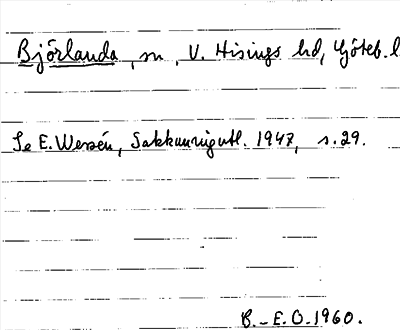 Björlanda, sn, V. Hisings hd, Göteb. l
Se E. Wessén, Sakkunnigutl. 1947, s. 29.
B.-E. O. 1960.